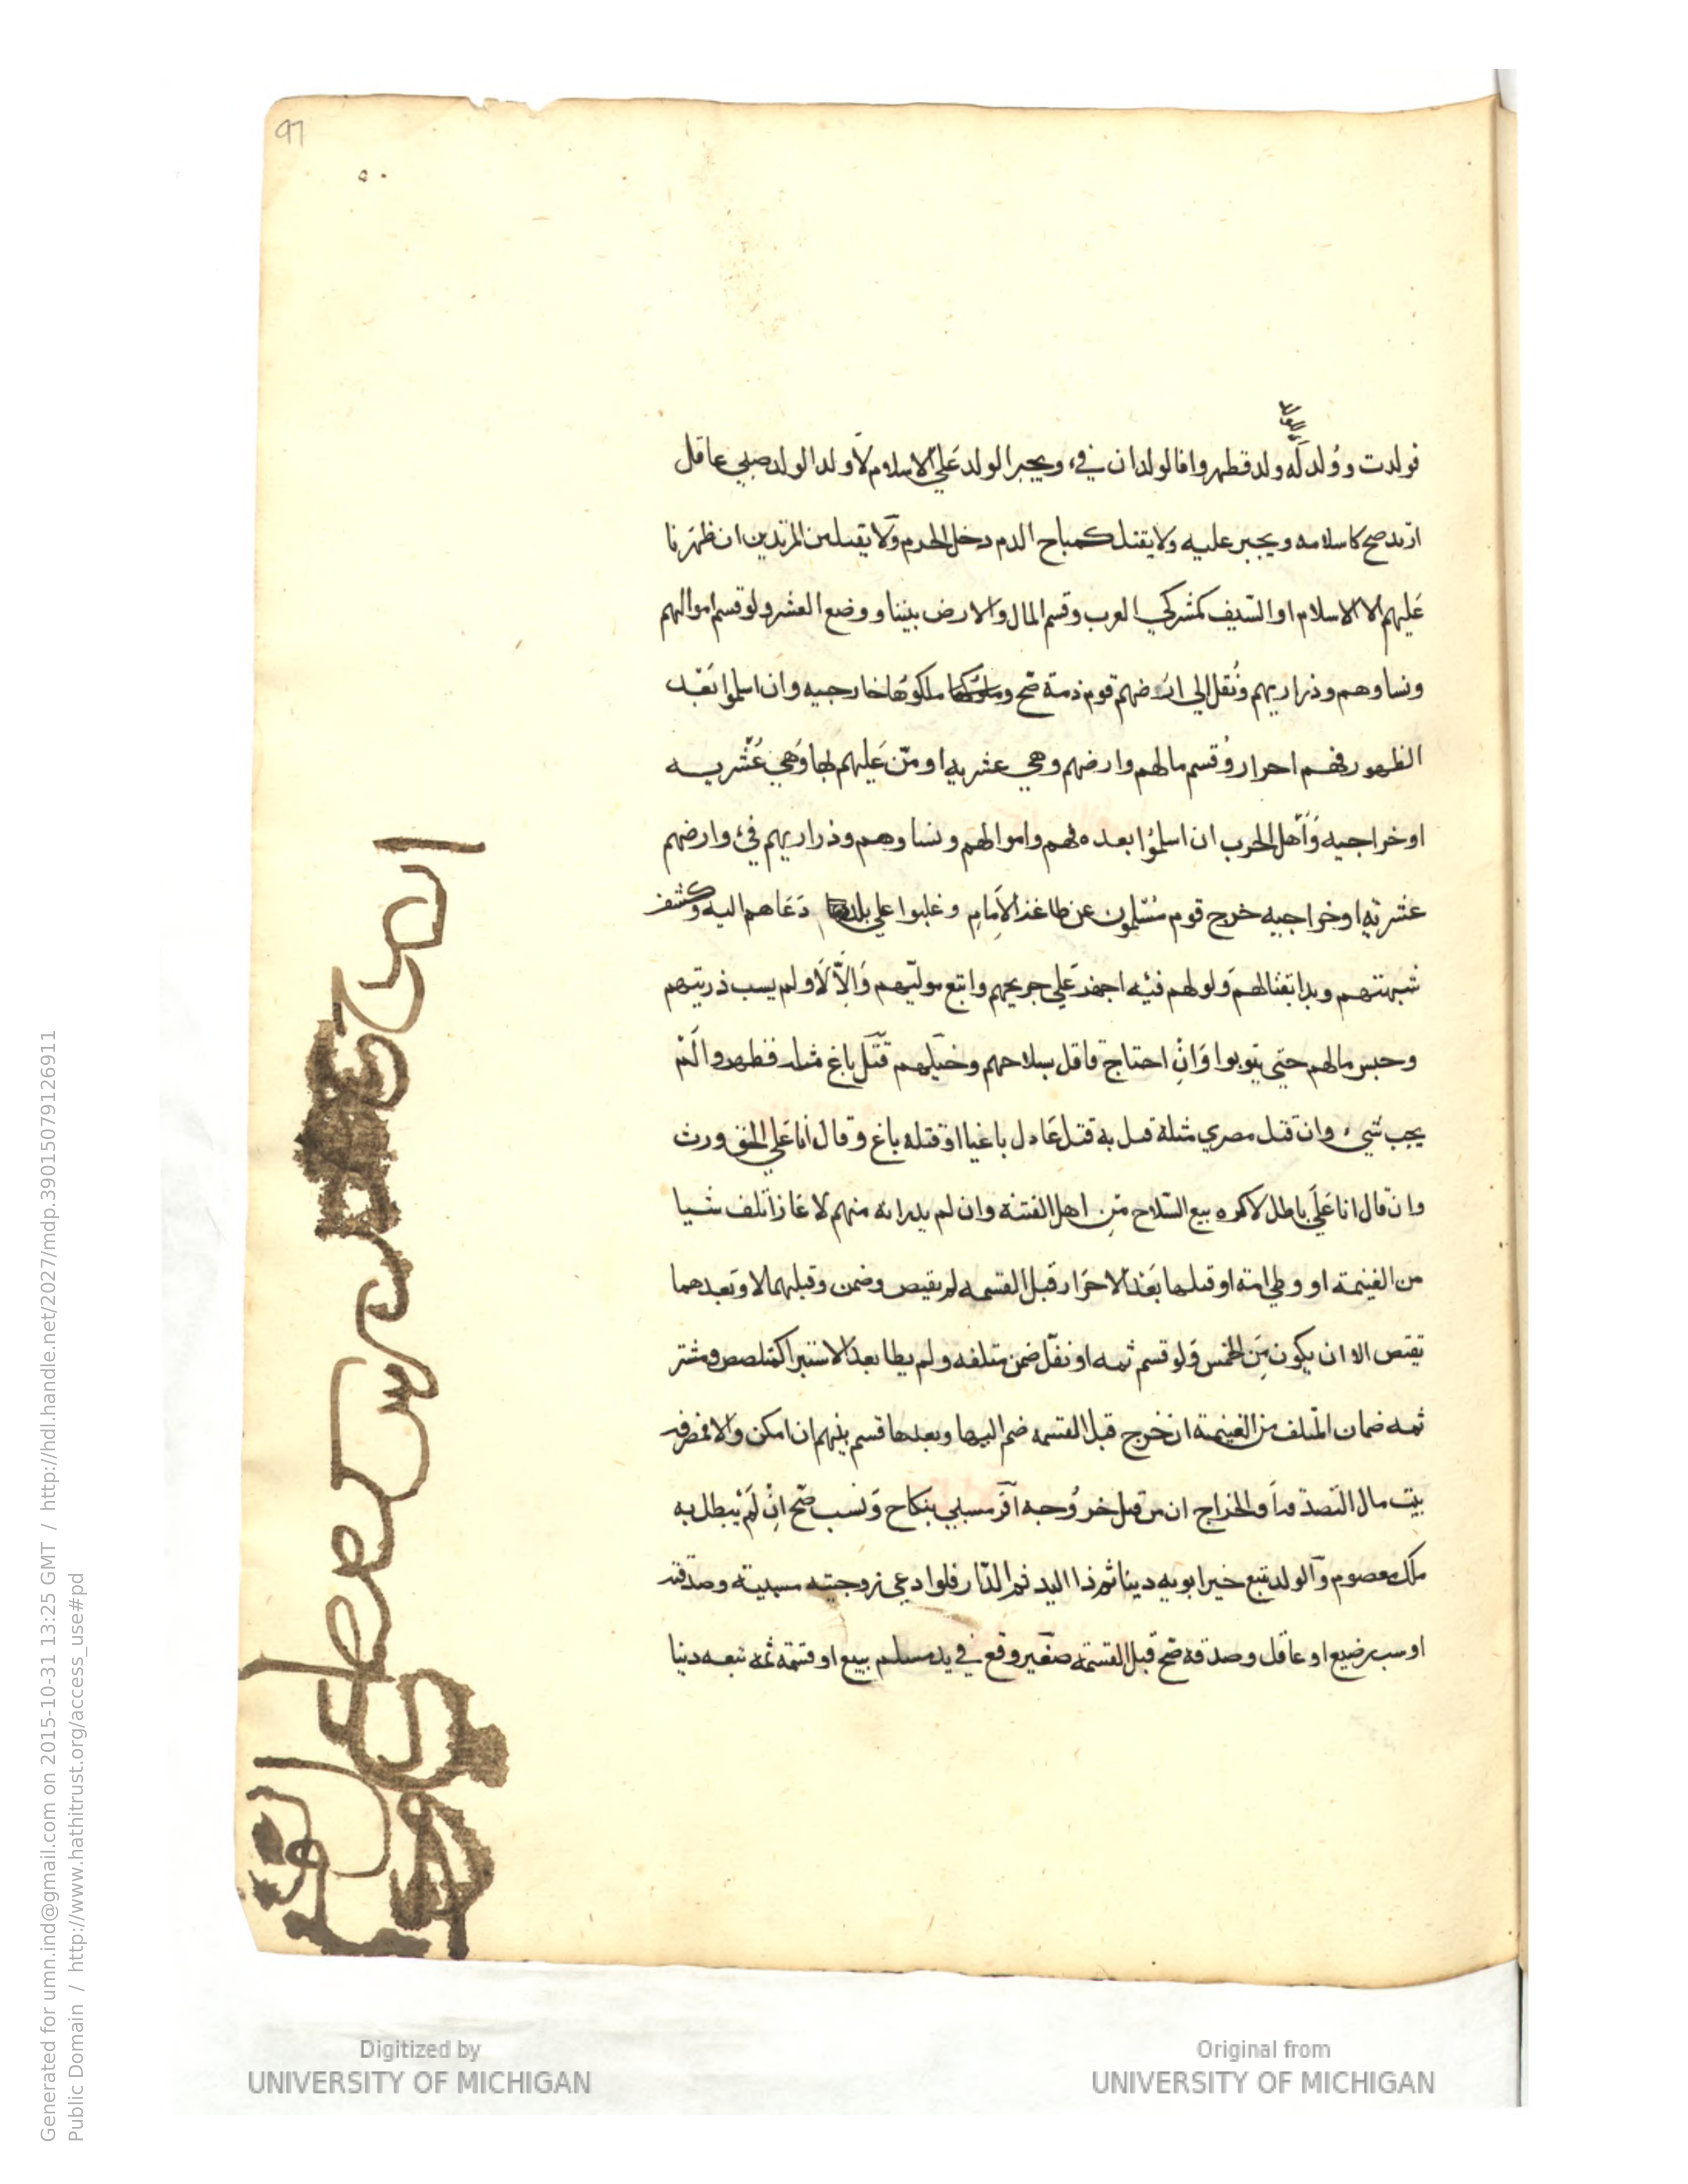 97
فولدت وولد له ولد فظهروا فالولدان فيء ويجبر الولد على الاسلام لا ولد الولد صبي عاقل
ارتد صح كاسلامه ويجبر عليه ولا يقتل كمباح الدم دخل الحرم ولا يقبل من المرتدين ان ظهرنا
عليهم الا الاسلام او السيف كمشركي العرب وقسم المال والارض بيننا ووضع العشر ولو قسم اموالهم
ونساوهم وذراريهم ونقل الى ارضهم قوم ذمة صح وملكوها خارجيه وان اسلموا بعد
الظهور فهم احرار وقسم مالهم وارضهم وهي عشريه او من عليهم بها وهي عشريه
او خراجيه واهل الحرب ان اسلموا بعده فهم واموالهم ونساوهم وذراريهم فيء وارضهم
عشرية او خراجيه خرج قوم مسلمون عن طاعة الامام وغلبوا على بلد دعاهم اليه وكشف
شبهتهم وبدا بقتالهم ولو لهم فئه اجهز على جريحهم واتبع موليهم والا لا ولم يسب ذريتهم
وحبس مالهم حتى يتوبوا وان احتاج قاتل بسلاحهم وخيلهم قتل باغ مثله فظهروا لم
يجب شيء وان قتل مصري مثله قتل به قتل عادل باغيا او قتله باغ وقال انا على الحق ورث
وان قال انا على باطل لا كره بيع السلاح من اهل الفتنة وان لم يدر انه منهم لا غاز اتلف شيا
من الغنيمة او وطي امة او قتلها بعد الاحراز قبل القسمه لم يقتص وضمن وقبلهما لا وبعدهما
يقتص الا ان يكون من الخمس ولو قسم ثمه او نفل ضمن متلفه ولم يطا بعد الاستبرا كمتلصص ومشتر
ثمه ضمان المتلف من الغنيمة ان خرج قبل القسمه ضم اليها وبعدها قسم بينهم ان امكن والا فمصرفه
بيت مال التصدق او الخراج ان من قبل خروجه اقر مسبي بنكاح ونسب صح ان لم يبطل به
ملك معصوم والولد يتبع خير ابويه دينا ثم ذا اليد ثم الدار فلو ادعى زوجيته مسبية وصدقته
او سب رضيع او عاقل وصدقه صح قبل القسمة صغير وقع في يد مسلم ببيع او قسمة ثمه تبعه دينا
Generated for umn.ind@gmail.com on 2015-10-31 13:25 GMT / http://hdl.handle.net/2027/mdp.39015079126911
Public Domain / http://www.hathitrust.org/access_use#pd
Digitized by
UNIVERSITY OF MICHIGAN
Original from
UNIVERSITY OF MICHIGAN